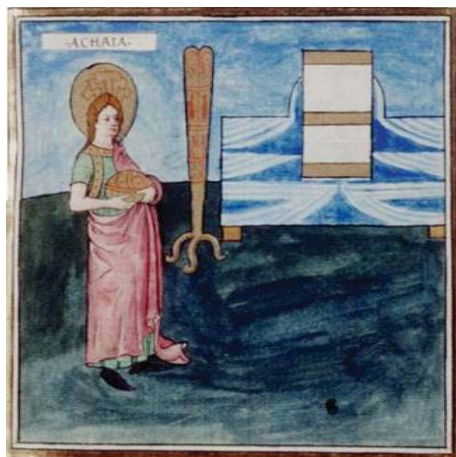 ·ACHAIA·